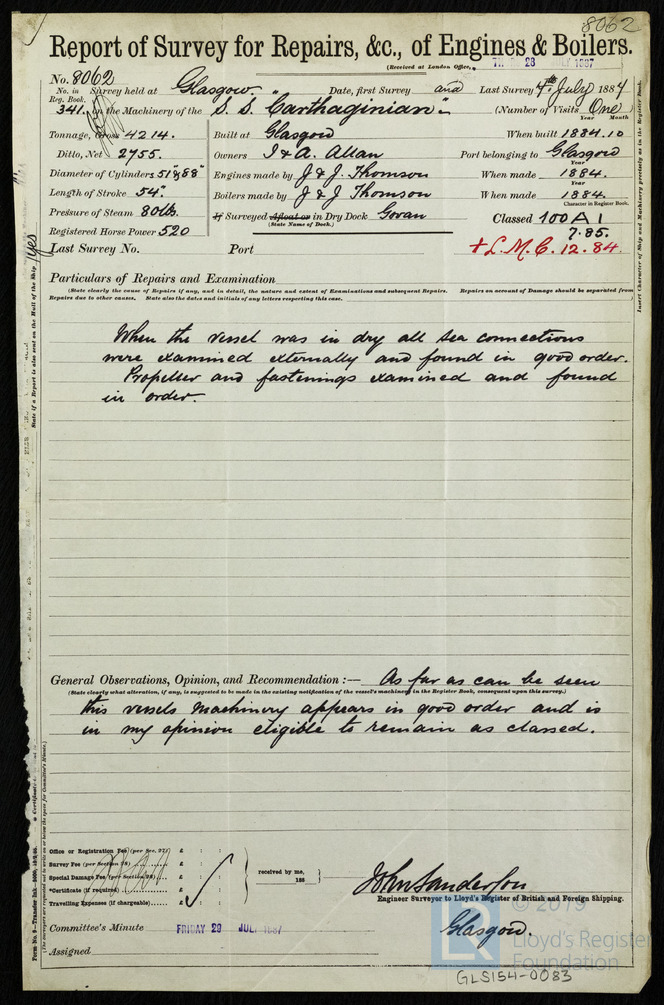 8062
Report of Survey for Repairs, &c., of Engines & Boilers.
(Received at London Office, 28 JULY 1887
No. 8062
No. in Reg. Book. Survey held at Glasgow. Date, first Survey and Last Survey 4th July 1887
341. on the Machinery of the S. S. "Carthaginian" (Number of Visits One)
Year Month
Tonnage, Gross 4214. Built at Glasgow When built 1884.10
Ditto, Net 2755. Owners J & A. Allan Port belonging to Glasgow
Year
Diameter of Cylinders 51" & 88" Engines made by J & J. Thomson When made 1884.
Year
Length of Stroke 54" Boilers made by J & J Thomson When made 1884.
Character in Register Book.
Pressure of Steam 80lb. If Surveyed Afloat or in Dry Dock Govan Classed 100 A 1
(State Name of Dock.)
7.85.
Registered Horse Power 520
Last Survey No. Port + L. M. C. 12. 84.
Particulars of Repairs and Examination
(State clearly the cause of Repairs if any, and in detail, the nature and extent of Examinations and subsequent Repairs. Repairs on account of Damage should be separated from
Repairs due to other causes, State also the dates and initials of any letters respecting this case.)
When the vessel was in dry all sea connections
were examined externally and found in good order.
Propeller and fastenings examined and found
in order.
General Observations, Opinion, and Recommendation :— As far as can be seen
(State clearly what alteration, if any, is suggested to be made in the existing notification of the vessel's machinery in the Register Book, consequent upon this survey.)
this vessels machinery appears in good order and is
in my opinion eligible to remain as classed.
Office or Registration Fee (per Sec. 27) £ : :
Survey Fee (per Section 28) £ : :
Special Damage Fee (per Section 28) £ : :
*Certificate (if required) £ : :
Travelling Expenses (if chargeable) £ : :
received by me,
188
John Sanderson
Engineer Surveyor to Lloyd's Register of British and Foreign Shipping.
Glasgow.
Committee's Minute FRIDAY 29 JULY 1887
Assigned
© 2019
LR
Lloyd's Register
Foundation
GLS154-0083
State if a Report is also sent on the Hull of the Ship yes
Insert Character of Ship and Machinery precisely as in the Register Book.